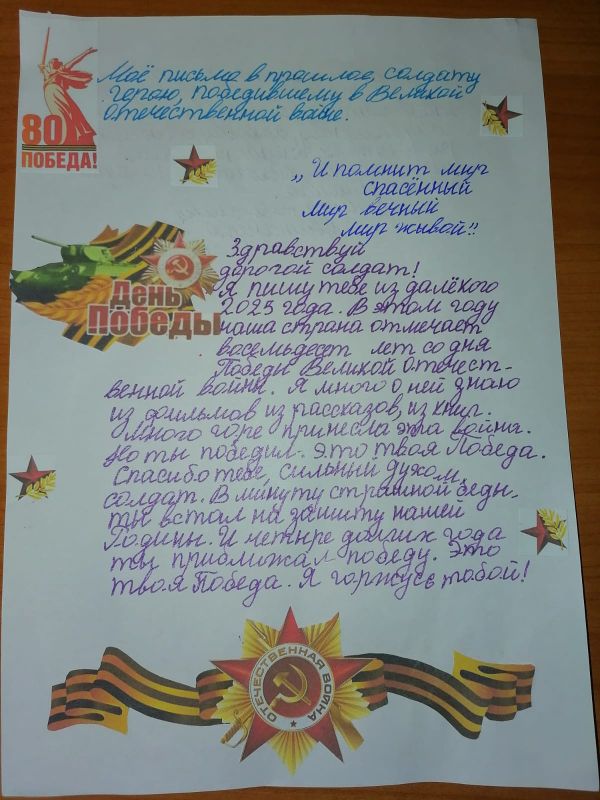 Моё письмо в прошлое, солдату
герою, победившему в Великой
Отечественной войне.
80
ПОБЕДА!
„И помнит мир
спасённый
Мир вечный
мир живой"!
День
Победы
Здравствуй
дорогой солдат!
Я пишу тебе из далёкого
2025 года. В этом году
наша страна отмечает
восемьдесят лет со дня
Победы Великой Отечест-
венной войны. Я много о ней знаю
из фильмов из рассказов, из книг.
Много горе принесла эта война.
Но ты победил. Это твоя Победа.
Спасибо тебе, сильный духом,
солдат. В минуту страшной беды
ты встал на защиту нашей
Родины. И четыре долгих года
ты приближал победу. Это
твоя Победа. Я горжусь тобой!
ОТЕЧЕСТВЕННАЯ ВОЙНА